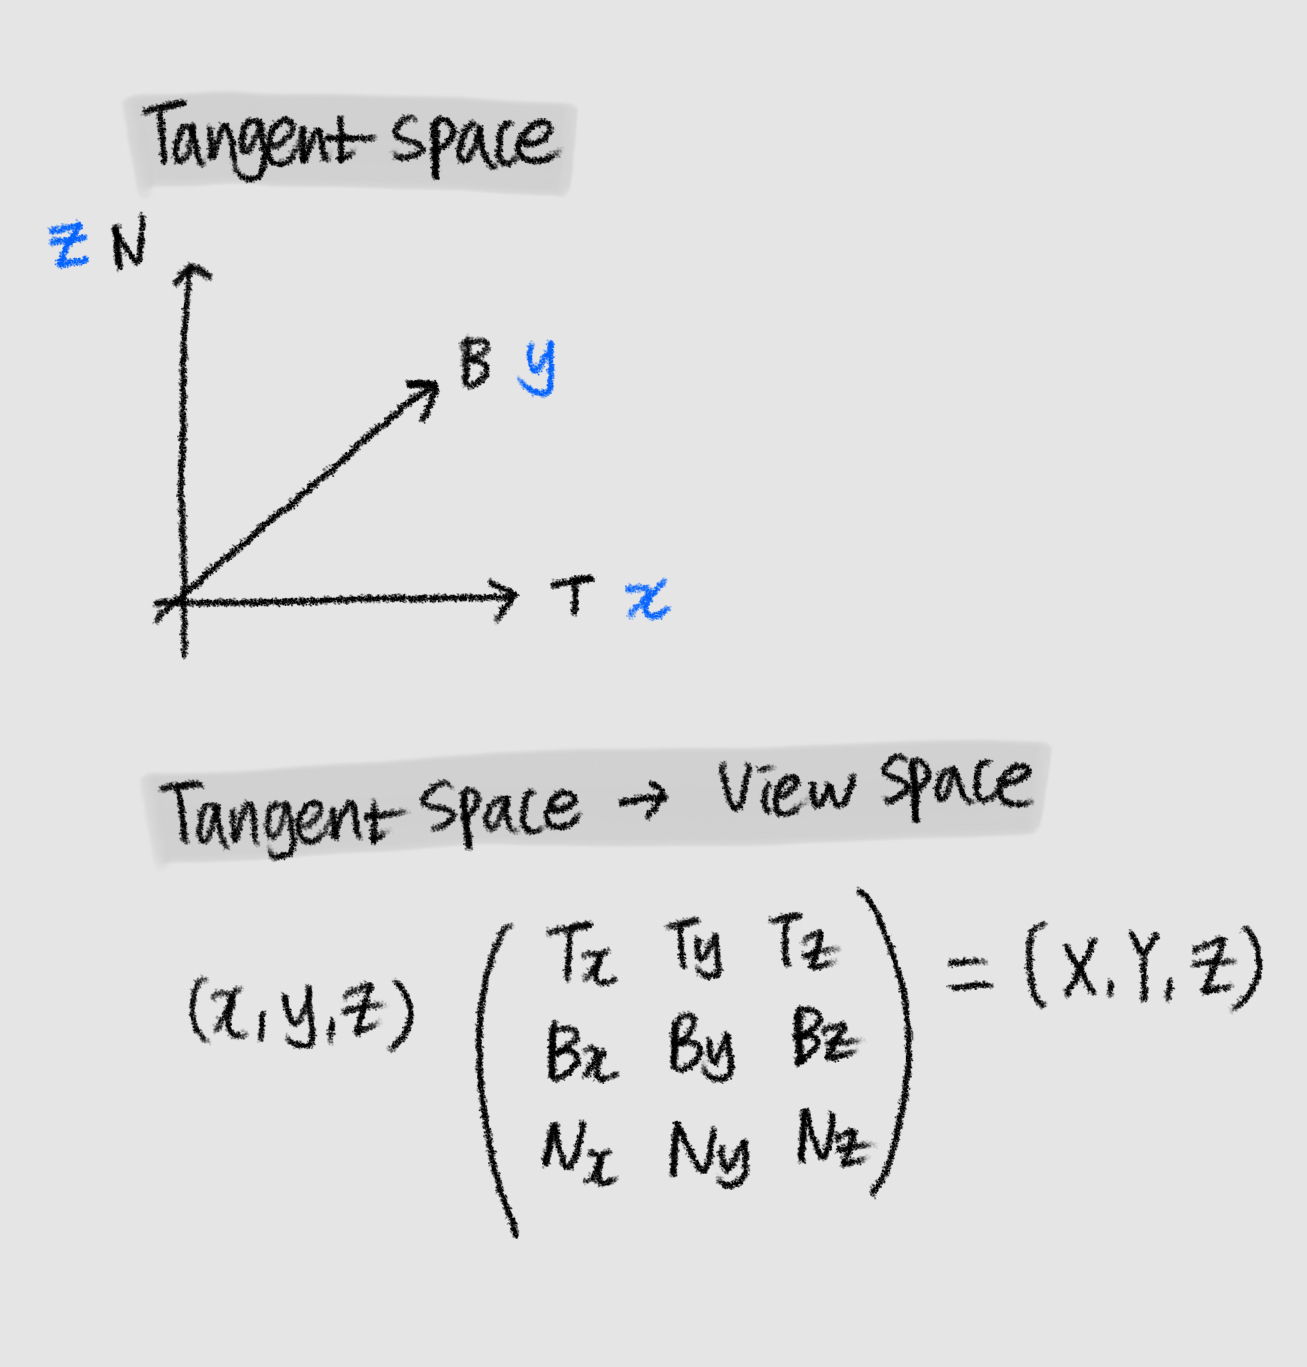 Tangent space
z N
B y
T x
Tangent space → View space
(x,y,z) ( Tx Ty Tz
Bx By Bz
Nx Ny Nz ) = (X,Y,Z)